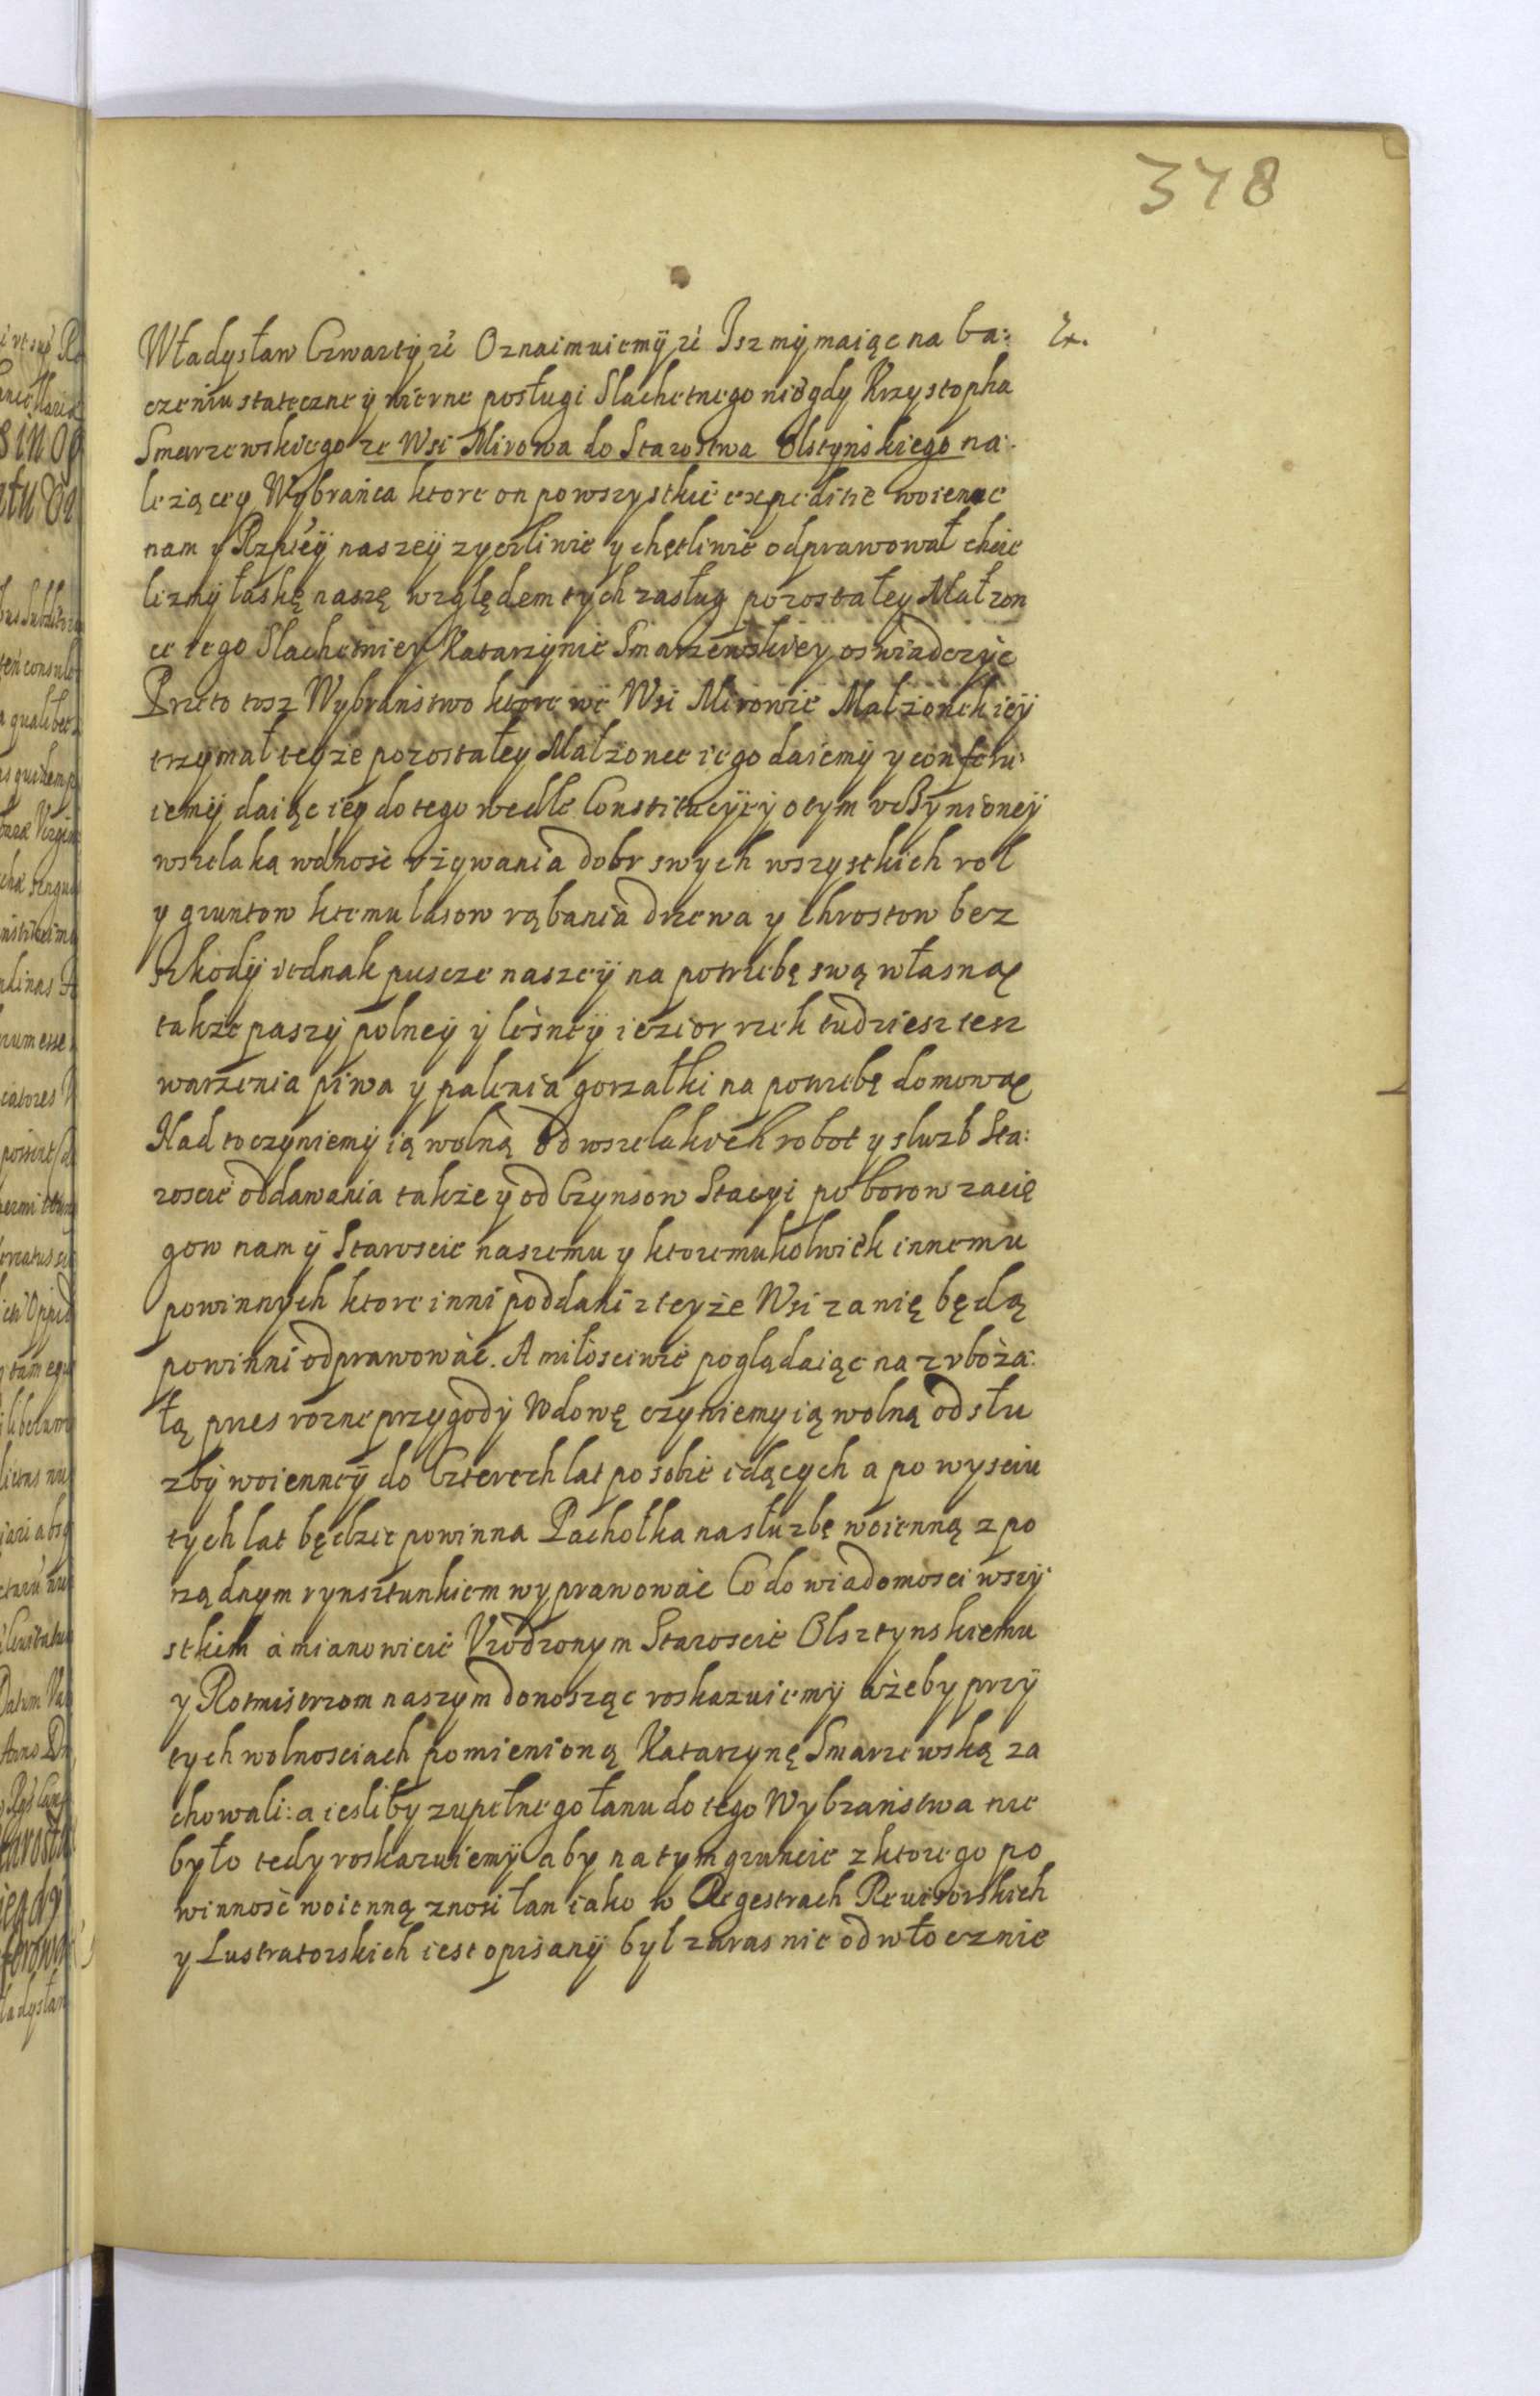 378
Władysław Czwarty zć Oznaimuiemy zé Isz my maiąc na ba:
czeniu stateczne y wierne posługi Slachetnego niegdy Krzystopha
Smarzewskiego ze Wsi Mirowa do Starostwa Olstyńskiego na:
leżącey Wybrańca ktore on po wszystkie expeditie woienne
nam y Rzpteÿ naszeÿ zyczliwie y chętliwie odprawował chcie
lizmy łaskę naszę względem tych zasług pozostałey Małzon
ce iego Slachetniey Katarzynie Smarzewskiey oswiadczyć
Przeto tosz Wybraństwo ktore we Wsi Mirowie Malzonek ieÿ
trzymał teyże pozostałey Małżonce iego daiemy y conferu
iemy daiąc iey do tego wedle Constitucyiy o tym uczynioneÿ
wszelaką wolność używania dobr swych wszystkich rol
y gruntow ktemu lasow rąbania drzewa y Chrostow bez
szkody iednak puscze naszeÿ na potrzebę swą własną
także paszy polneÿ ÿ leśneÿ iezior rzek tudziesz tesz
warzenia piwa y palenia gorzałki na potrzebę domową
Nad to czyniemy ią wolną od wszelakich robot y służb Sta:
roscie oddawania także ÿ od Czynsow Stacyi poborow zacię
gow nam ÿ Staroscie naszemu y ktoremukolwiek innemu
powinnych ktore inni poddani z teyże Wsi za nię będą
powinni odprawować. A miłosciwie poglądaiąc na zuboża:
łą przes rozne przygody Wdowę czyniemy ią wolną od słu
zby woienneÿ do Czterech lat po sobie idących a po wysciu
tych lat będzie powinna Pachołka na służbę woienną z po
rządnym rynsztunkiem wyprawować Co do wiadomosci wszy
stkim a mianowicie Urodzonym Staroscie Olsztynskiemu
y Rotmistrzom naszym donosząc roskazuiemy ażeby przy
tych wolnosciach pomienioną Katarzynę Smarzewską za
chowali: a iesliby zupełnego łanu do tego Wybraństwa nie
było tedy roskazuiemy aby na tym gruncie z ktorego po
winność woienną znosi łan iako w Regestrach Rewisorskich
y Lustratorskich iest opisany był zaras nie odwłocznie